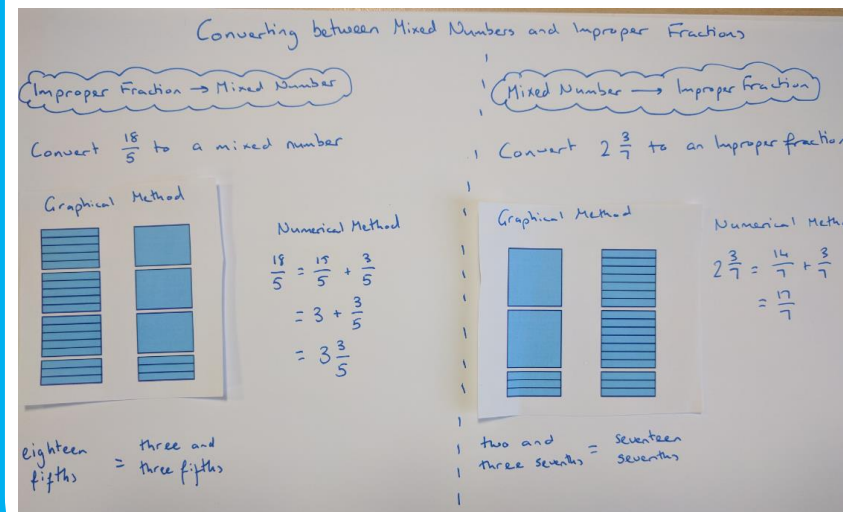 Converting between Mixed Numbers and Improper Fractions
Improper Fraction → Mixed Number
Convert 18/5 to a mixed number
Graphical Method
Numerical Method
18/5 = 15/5 + 3/5
= 3 + 3/5
= 3 3/5
eighteen fifths = three and three fifths
Mixed Number → Improper Fraction
Convert 2 3/7 to an Improper fractio
Graphical Method
Numerical Meth
2 3/7 = 14/7 + 3/7
= 17/7
two and three sevenths = seventeen sevenths